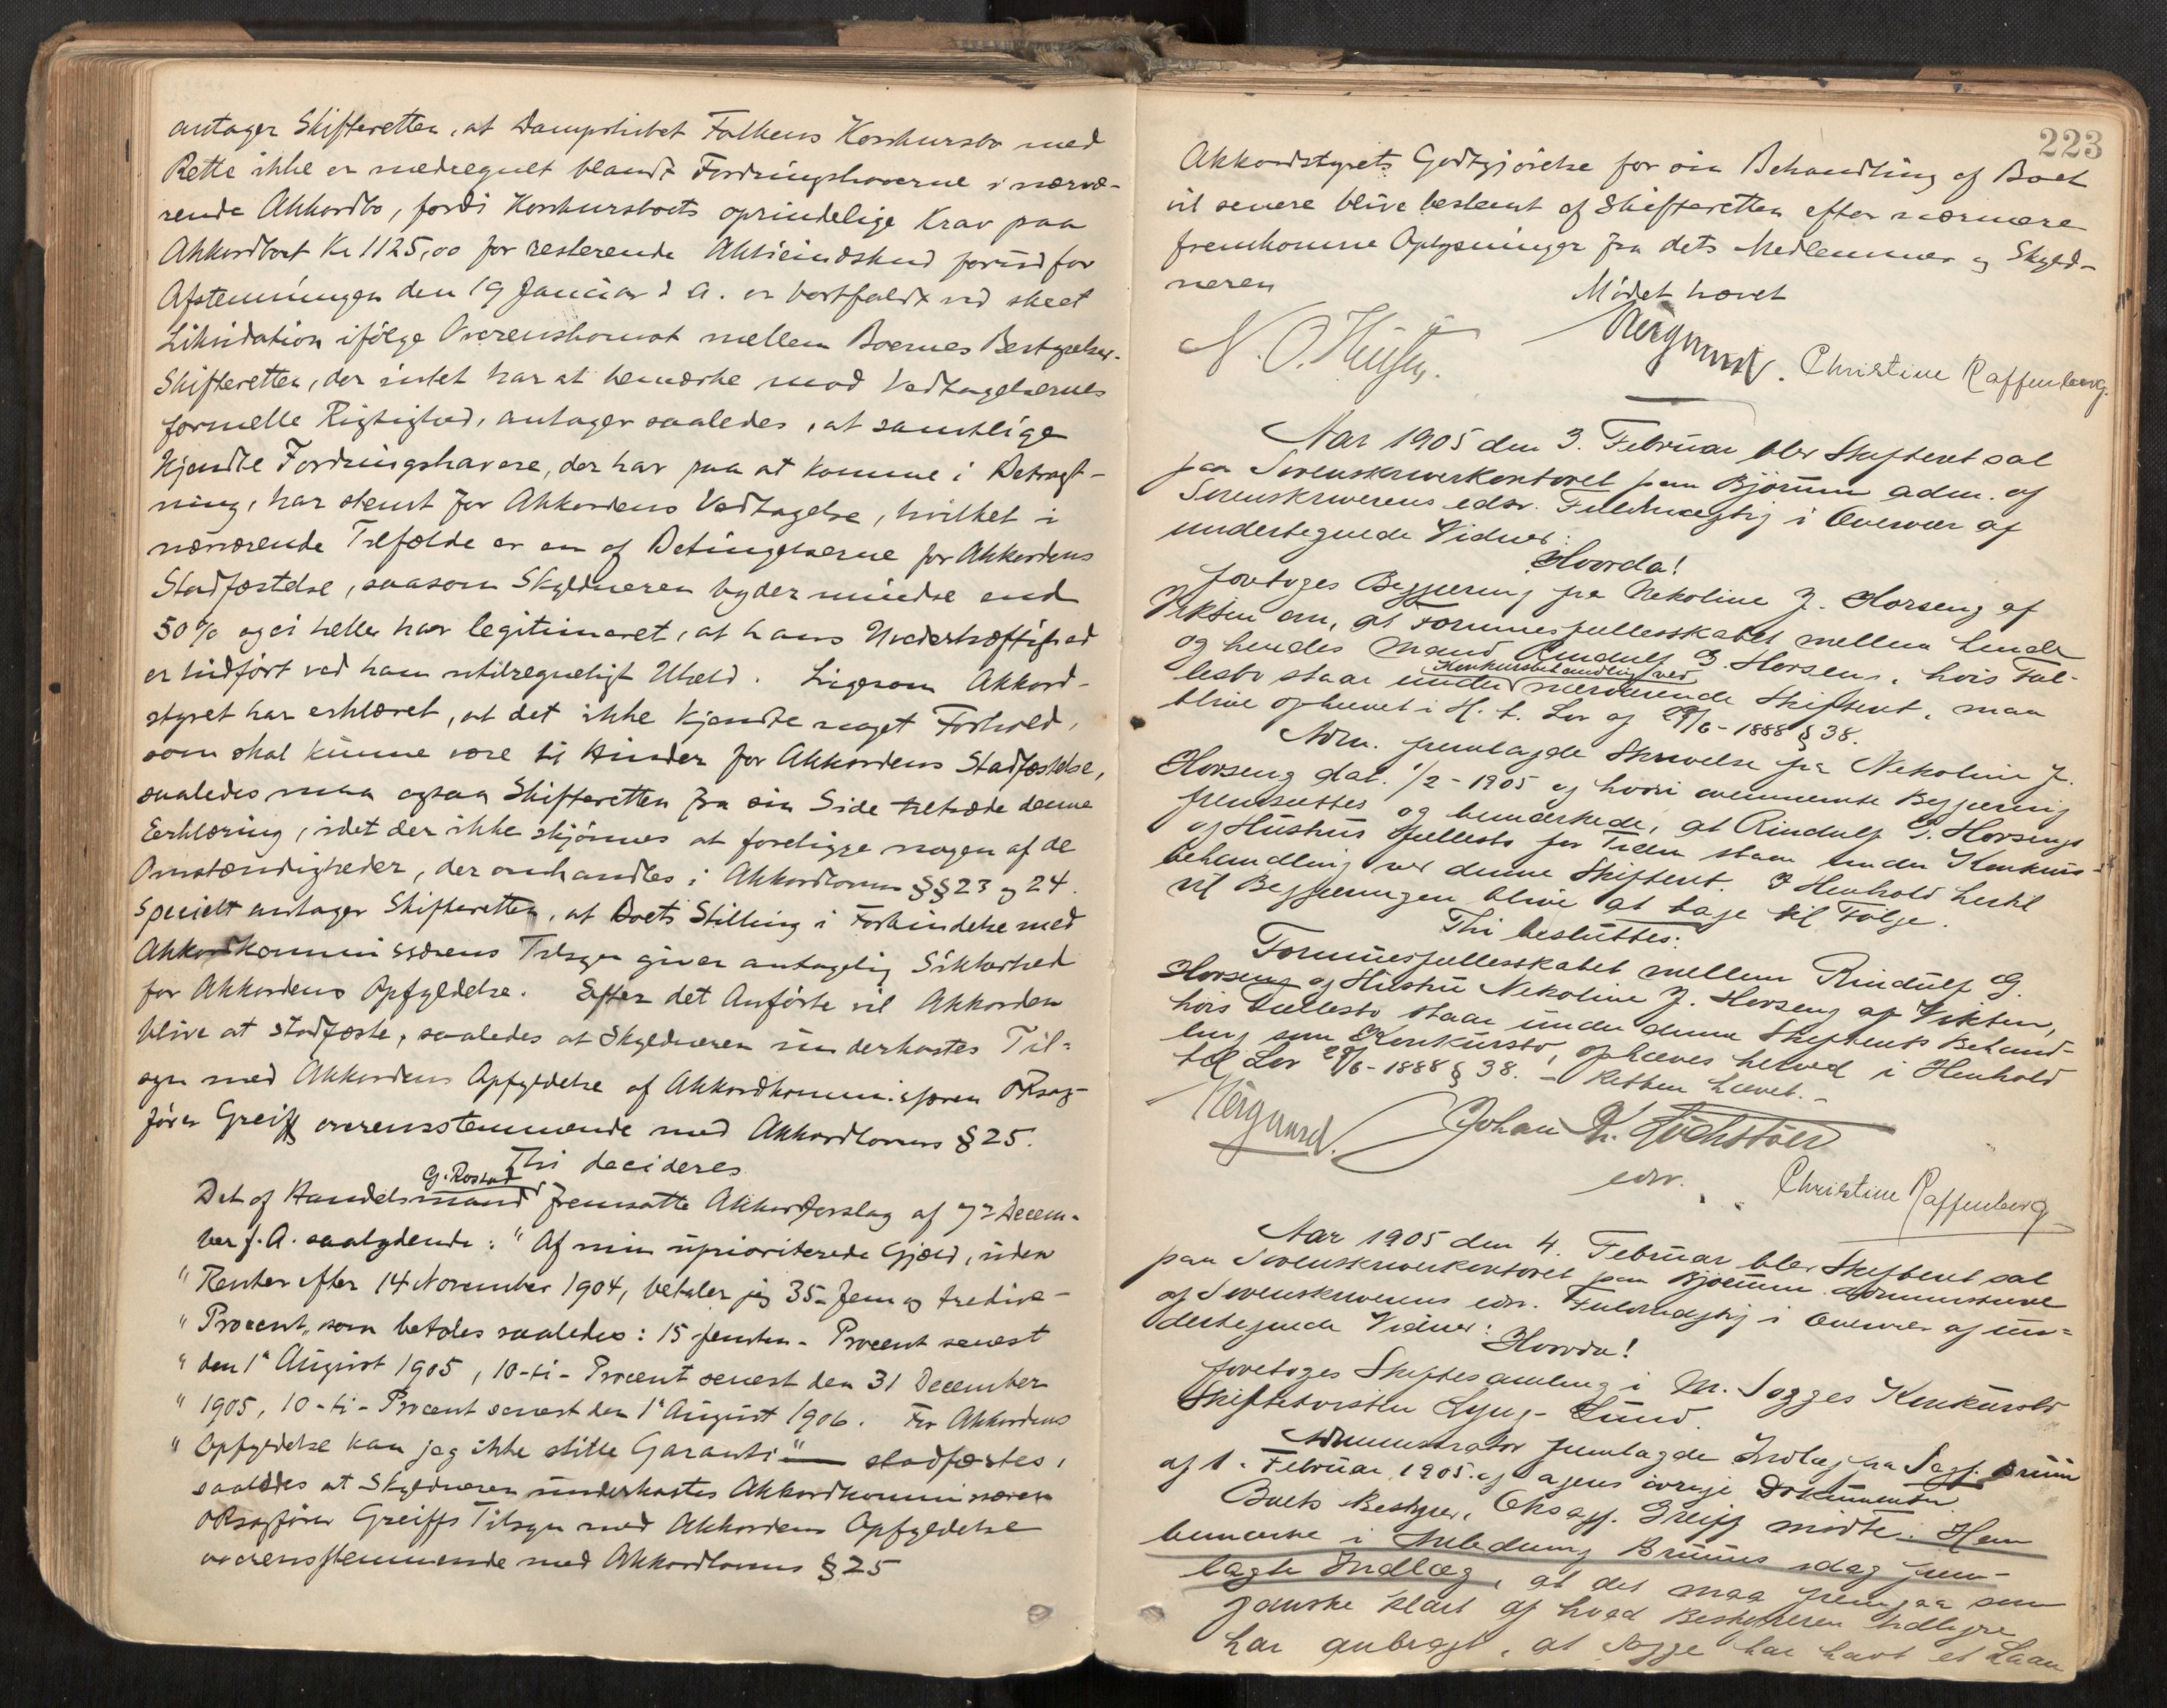 antager Skifteretten, at Dampskibet Falkens Konkursbo med
Rette ikke er medregnet blandt Fordringshaverne i nærvæ-
rende Akkordbo, fordi Konkursboets oprindelige Krav paa
Akkordboet Kr 1125,00 for resterende Aktieindskud forud for
Afstemningen den 19 Januar d A. er bortfaldt ved skeet
Likvidation ifølge Overenskomst mellem Boernes Bestyrelser.
Skifteretten, der intet har at bemærke mod Vedtagelsernes
formelle Rigtighed, antager saaledes, at samtlige
kjendte Fordringshavere, der har paa at komme i Betragt-
ning, har stemt for Akkordens Vedtagelse, hvilket i
nærværende Tilfælde er en af Betingelserne for Akkordens
Stadfæstelse, saasom Skyldneren byder mindre end
50% og ei heller har legitimeret, at hans Uvederhæftighed
er hidført ved ham utilregneligt Uheld. Ligesom Akkord-
styret har erklæret, at det ikke kjendte noget Forhold,
som skal kunne være til Hinder for Akkordens Stadfæstelse,
saaledes maa ogsaa Skifteretten fra sin Side tiltræde denne
Eerklæring, idet der ikke skjønnes at foreligge nogen af de
Omstændigheder, der omhandles i Akkordlovens §§23 og 24.
Specielt antager Skifteretten, at Boets Stilling i Forbindelse med
Akkordkommissærens Tilsyn giver antagelig Sikkerhed
for Akkordens Opfyldelse. Efter det Anførte vil Akkorden
blive at stadfæste, saaledes at Skyldneren underkastes Til-
syn med Akkordens Opfyldelse af Akkordkommissæren ORsag-
fører Greiff overensstemmende med Akkordlovens §25.
Thi decideres
G. Rostad
Det af Handelsmand fremsatte Akkordforslag af 7de Decem-
ber f. A. saalydende: "Af min uprioriterede Gjæld, uden
"Renter efter 14 November 1904, betaler jeg 35- fem og tredive-
"Procent, som betales saaledes: 15 femten- Procent senest
"den 1ste August 1905, 10-ti- Procent senest den 31 December
"1905, 10-ti- Procent senest den 1ste August 1906. For Akkordens
"Opfyldelse kan jeg ikke stille Garanti"— stadfæstes,
saaledes at Skyldneren underkastes Akkordkommissæren
ORsagfører Greiffs Tilsyn med Akkordens Opfyldelse
overensstemmende med Akkordlovens §25
223
Akkordstyrets Godtgjørelse for sin Behandling af Boet
vil senere blive bestemt af Skifteretten efter nærmere
fremkomne Oplysninger fra dets Medlemmer og Skyld-
neren
Mødet hævet
N. O. Christine Raffenberg.
Aar 1905 den 3. Februar blev Skifteret sat
paa Sorenskriverkontoret paa Bjørum adm. af
Sorenskriverens edsv. Fuldmægtig i Overvær af
undertegnede Vidner:
Hvorda!
foretoges Begjæring fra Nekoline J. Horseng af
Vikten om, at Formuesfællesskabet mellem hende
og hendes Mand Rindulf G. Horseng, hvis Fæl-
Konkursbehandling ved
lesbo staar under nærværende Skifteret, maa
blive ophævet i H. t. Lov af 29/6-1888 § 38.
Adm. fremlagde Skrivelse fra Nekoline J.
Horseng dat. 1/2-1905 og hvori ovennævnte Begjæring
fremsættes og bemærkede, at Rindulf G. Horsengs
og Hustrus Fællesbo for Tiden staar under Konkurs-
behandling ved denne Skifteret. I Henhold hertil
vil Begjæringen blive at tage til Følge.
Thi besluttes:
Formuesfællesskabet mellem Rindulf G.
Horseng og Hustru Nekoline J. Horseng af Vikten,
hvis Fællesbo staar under denne Skifterets Behand-
ling som Konkursbo, ophæves herved i Henhold
til Lov 29/6-1888 § 38. – Retten hævet. –
Johan
edsv. Christine Raffenberg
Aar 1905 den 4. Februar blev Skifteret sat
paa Sorenskriverkontoret paa Bjørum administreret
af Sorenskriverens edsv. Fuldmægtig i Overvær af un-
dertegnede Vidner:
Hvorda!
foretoges Skiftesamling i M. Sagges Konkursbo
Skiftetvisten Lyng-Lund.
Administrator fremlagde Indlæg fra Sagf. Bruun
af 1. Februar 1905 og agens øvrige Dokumenter.
Boets Bestyrer, Oksagf. Greiff mødte. Han
bemærkede i Anledning Bruuns idag frem-
lagte Indlæg, at det maa fremgaa som
ganske klart af hvad Bestyreren tidligere
har anbragt, at Sagge har havt et Laan